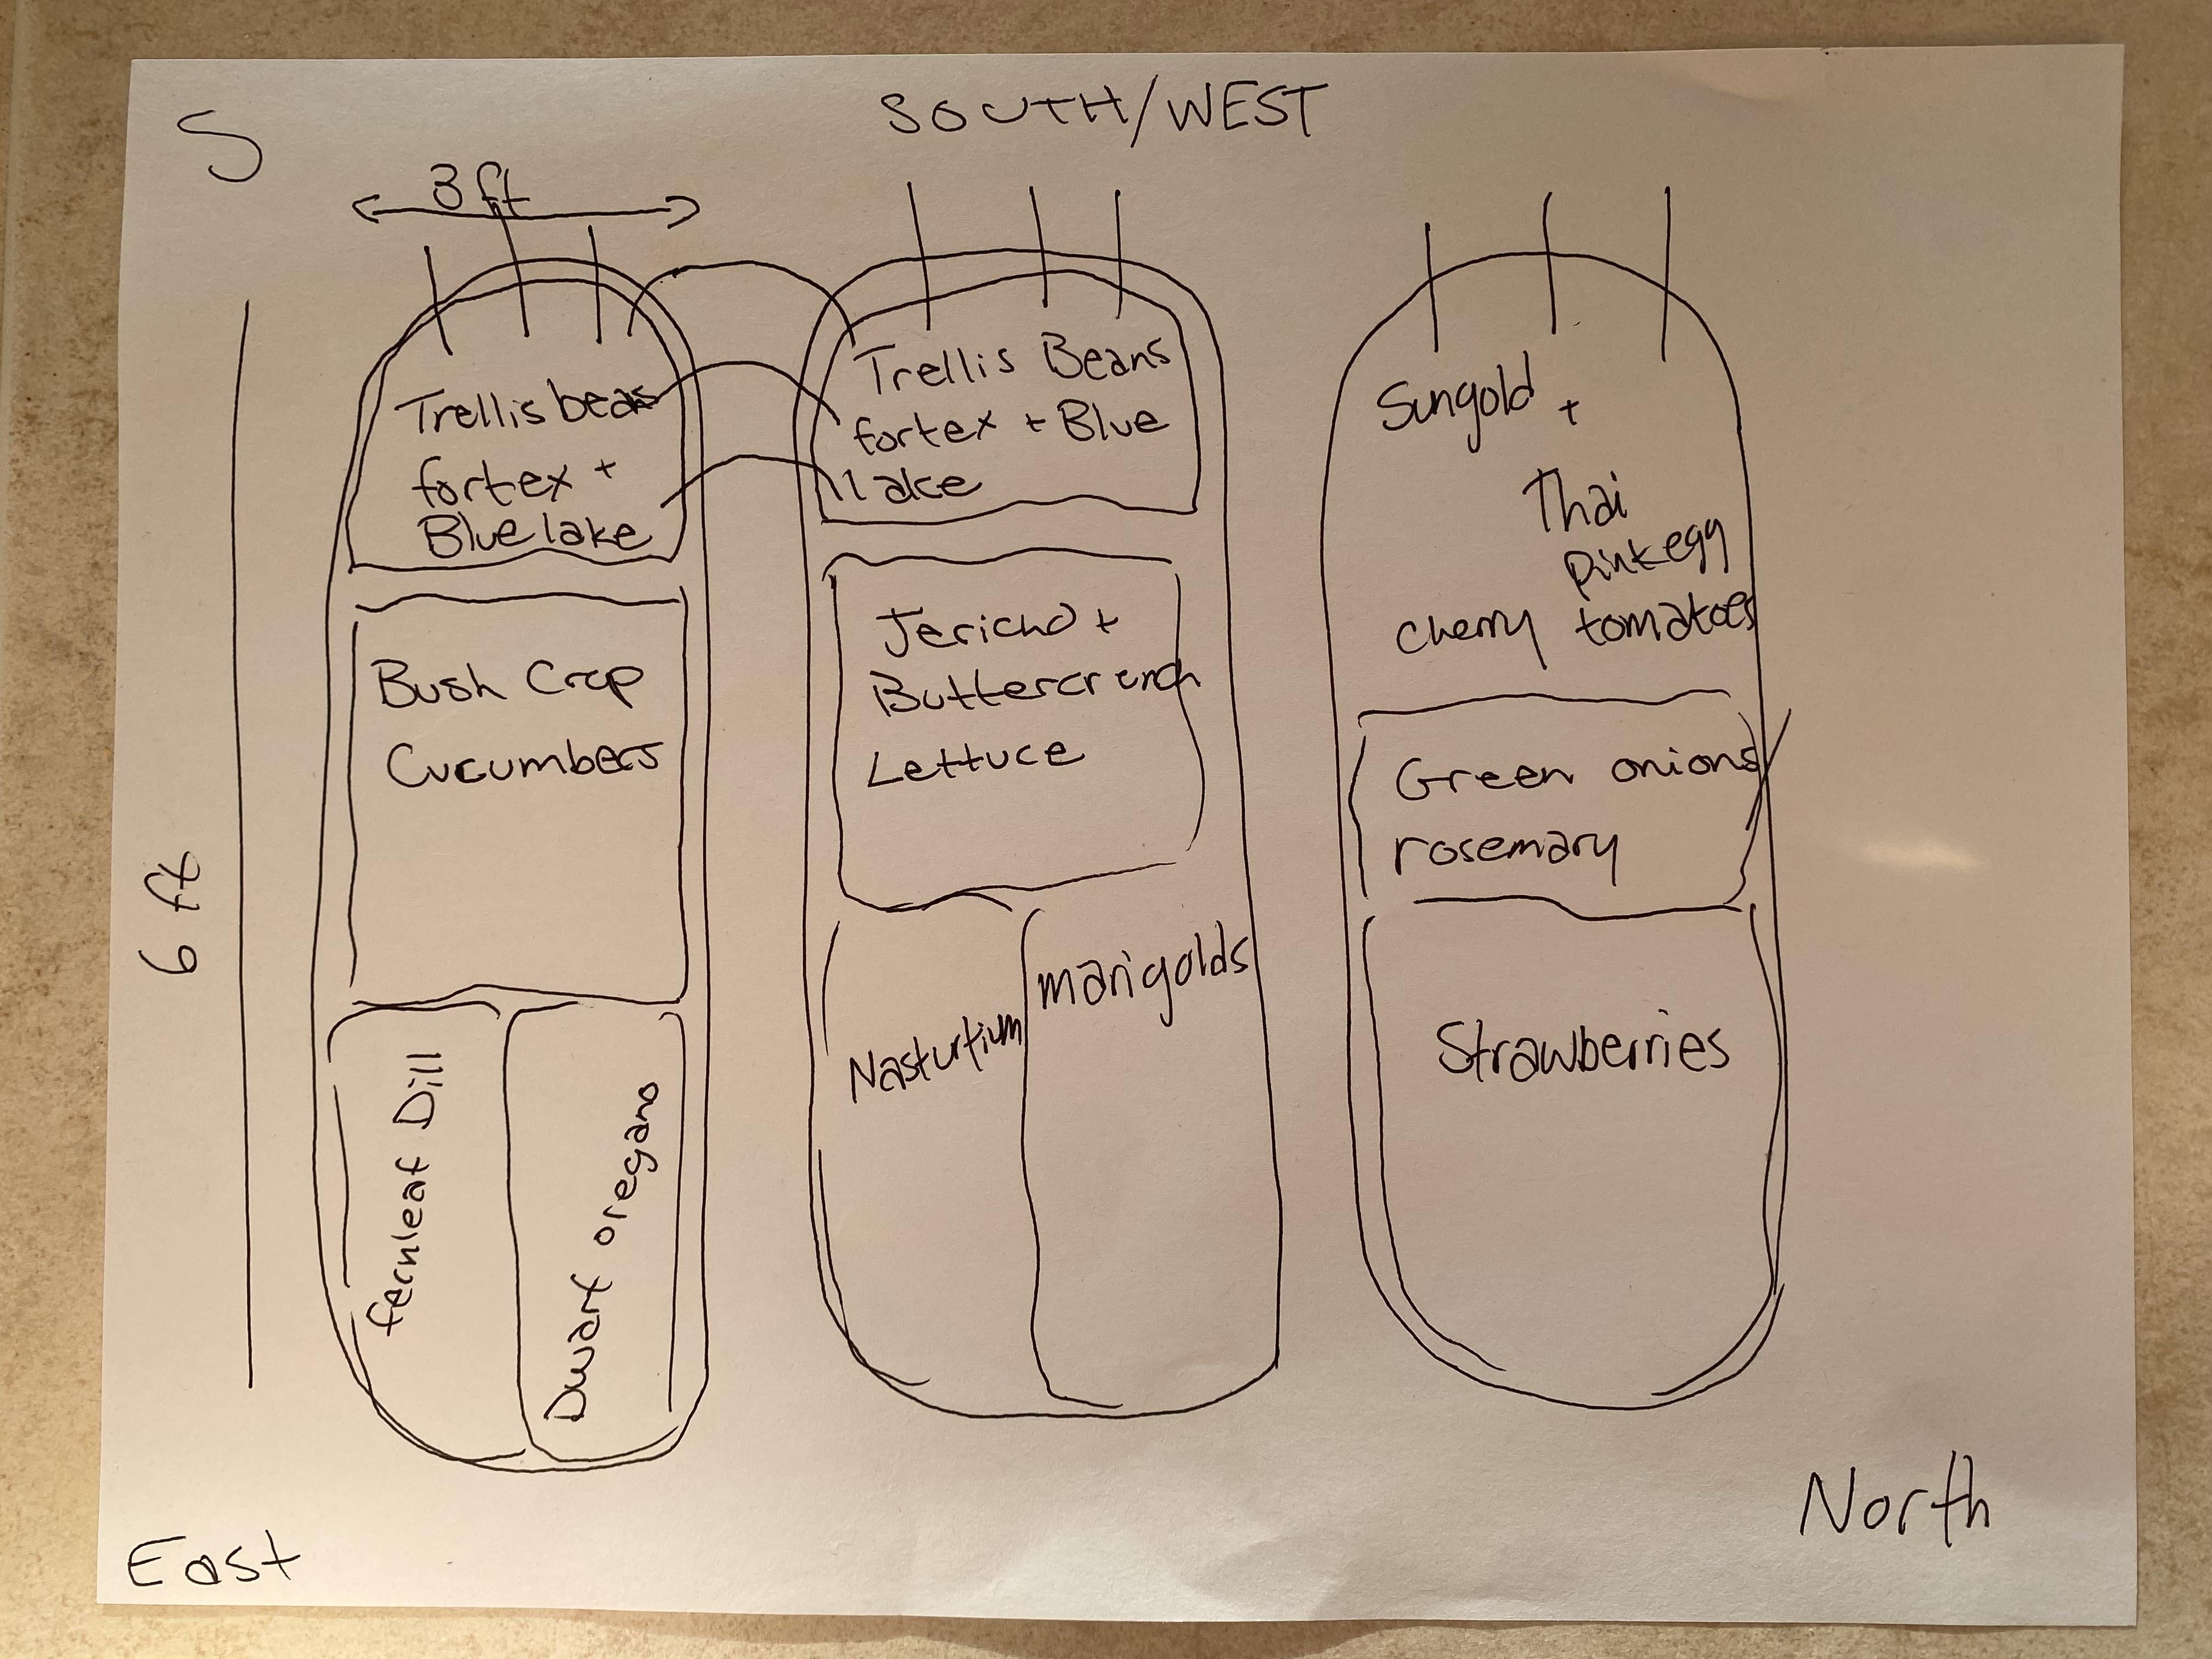 S
SOUTH/WEST
3 ft
6 ft
Trellis beans
fortex +
Blue lake
Bush Crop
Cucumbers
fernleaf Dill
Dwarf oregano
Trellis Beans
fortex + Blue
lake
Jericho +
Buttercrunch
Lettuce
Nasturtium
marigolds
Sungold +
Thai
pink egg
cherry tomatoes
Green onions
rosemary
Strawberries
East
North